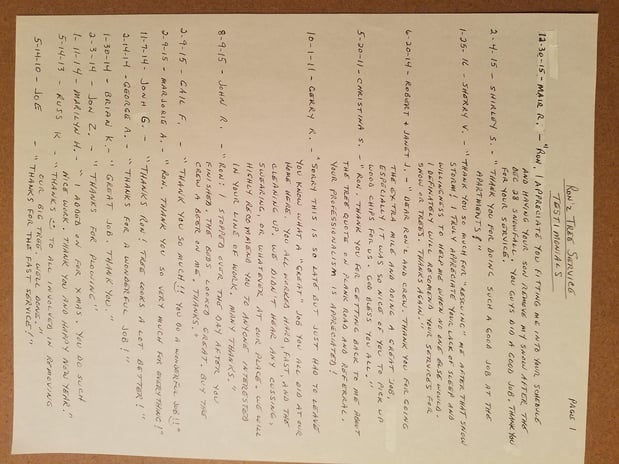 PAGE 1
RON'S TREE SERVICE
TESTIMONIALS
12-30-15 - MAIR R. - "RON, I APPRECIATE YOU FITTING ME INTO YOUR SCHEDULE
AND HAVING YOUR SON REMOVE MY SNOW AFTER THE
DEC 28 SNOWFALL. YOU GUYS DID A GOOD JOB. THANK YOU
FOR YOUR SERVICE."
2-4-15 SHIRLEY S. - "THANK YOU FOR DOING SUCH A GOOD JOB AT THE
APARTMENTS!"
1-25-16 - SHERRY V. - "THANK YOU SO MUCH FOR "RESCUING" ME AFTER THAT SNOW
STORM! I TRULY APPRECIATE YOUR LACK OF SLEEP AND
WILLINGNESS TO HELP ME WHEN NO ONE ELSE WOULD.
I DEFINATELY WILL RECOMEND YOUR SERVICES FOR
SNOW OR TREES! THANKS AGAIN."
6-20-14 - ROBERT & JANET L. - "DEAR RON L AND CREW, THANK YOU FOR GOING
THE EXTRA MILE AND DOING A GREAT JOB,
ESPECIALLY IT WAS SO NICE OF YOU TO PICK UP
WOOD CHIPS FOR US. GOD BLESS YOU ALL."
5-20-11 - CHRISTINA S. - "RON, THANK YOU FOR GETTING BACK TO ME ABOUT
THE TREE QUOTE ON PLANK ROAD AND REFERRAL.
YOUR PROFESSIONALISM IS APPRECIATED!
10-1-11 - GERRY R. - "SORRY THIS IS SO LATE BUT JUST HAD TO LEAVE
YOU KNOW WHAT A "GREAT" JOB YOU ALL DID AT OUR
HOME HERE. YOU ALL WORKED HARD, FAST, AND THE
CLEANING UP. WE DIDN'T HEAR ANY CUSSING,
SWEARING, OR WHATEVER AT OUR PLACE. WE WILL
HIGHLY RECOMMEND YOU TO ANYONE INTERESTED
IN YOUR LINE OF WORK. MANY THANKS."
8-9-15 - JOHN R. - "RON: I STOPPED OVER THE DAY AFTER YOU
FINISHED & THE YARD LOOKED GREAT. BUY THE
CREW A BEER ON ME, THANKS.
2-9-15 - GAIL F. - "THANK YOU SO MUCH!! YOU DO A WONDERFUL JOB!!"
2-9-15 - MARJORIE A. - "RON, THANK YOU SO VERY MUCH FOR EVERYTHING!"
11-7-14 - JOHN G. - "THANKS RON! TREE LOOKS A LOT BETTER!"
2-14-14 - GEORGE A. - "THANKS FOR A WONDERFUL JOB!"
1-30-14 - BRIAN K. - "GREAT JOB. THANK YOU."
2-3-14 - JON Z. - "THANKS FOR PLOWING"
1-11-14 - MARILYN H. - "I ADDED IN FOR XMAS. YOU DO SUCH
NICE WORK. THANK YOU AND HAPPY NEW YEAR."
5-14-13 - RUSS K - "THANKS TO ALL INVOLVED IN REMOVING
OUR BIG TREE. WELL DONE."
5-14-10 - JOE - "THANKS FOR THE FAST SERVICE!"